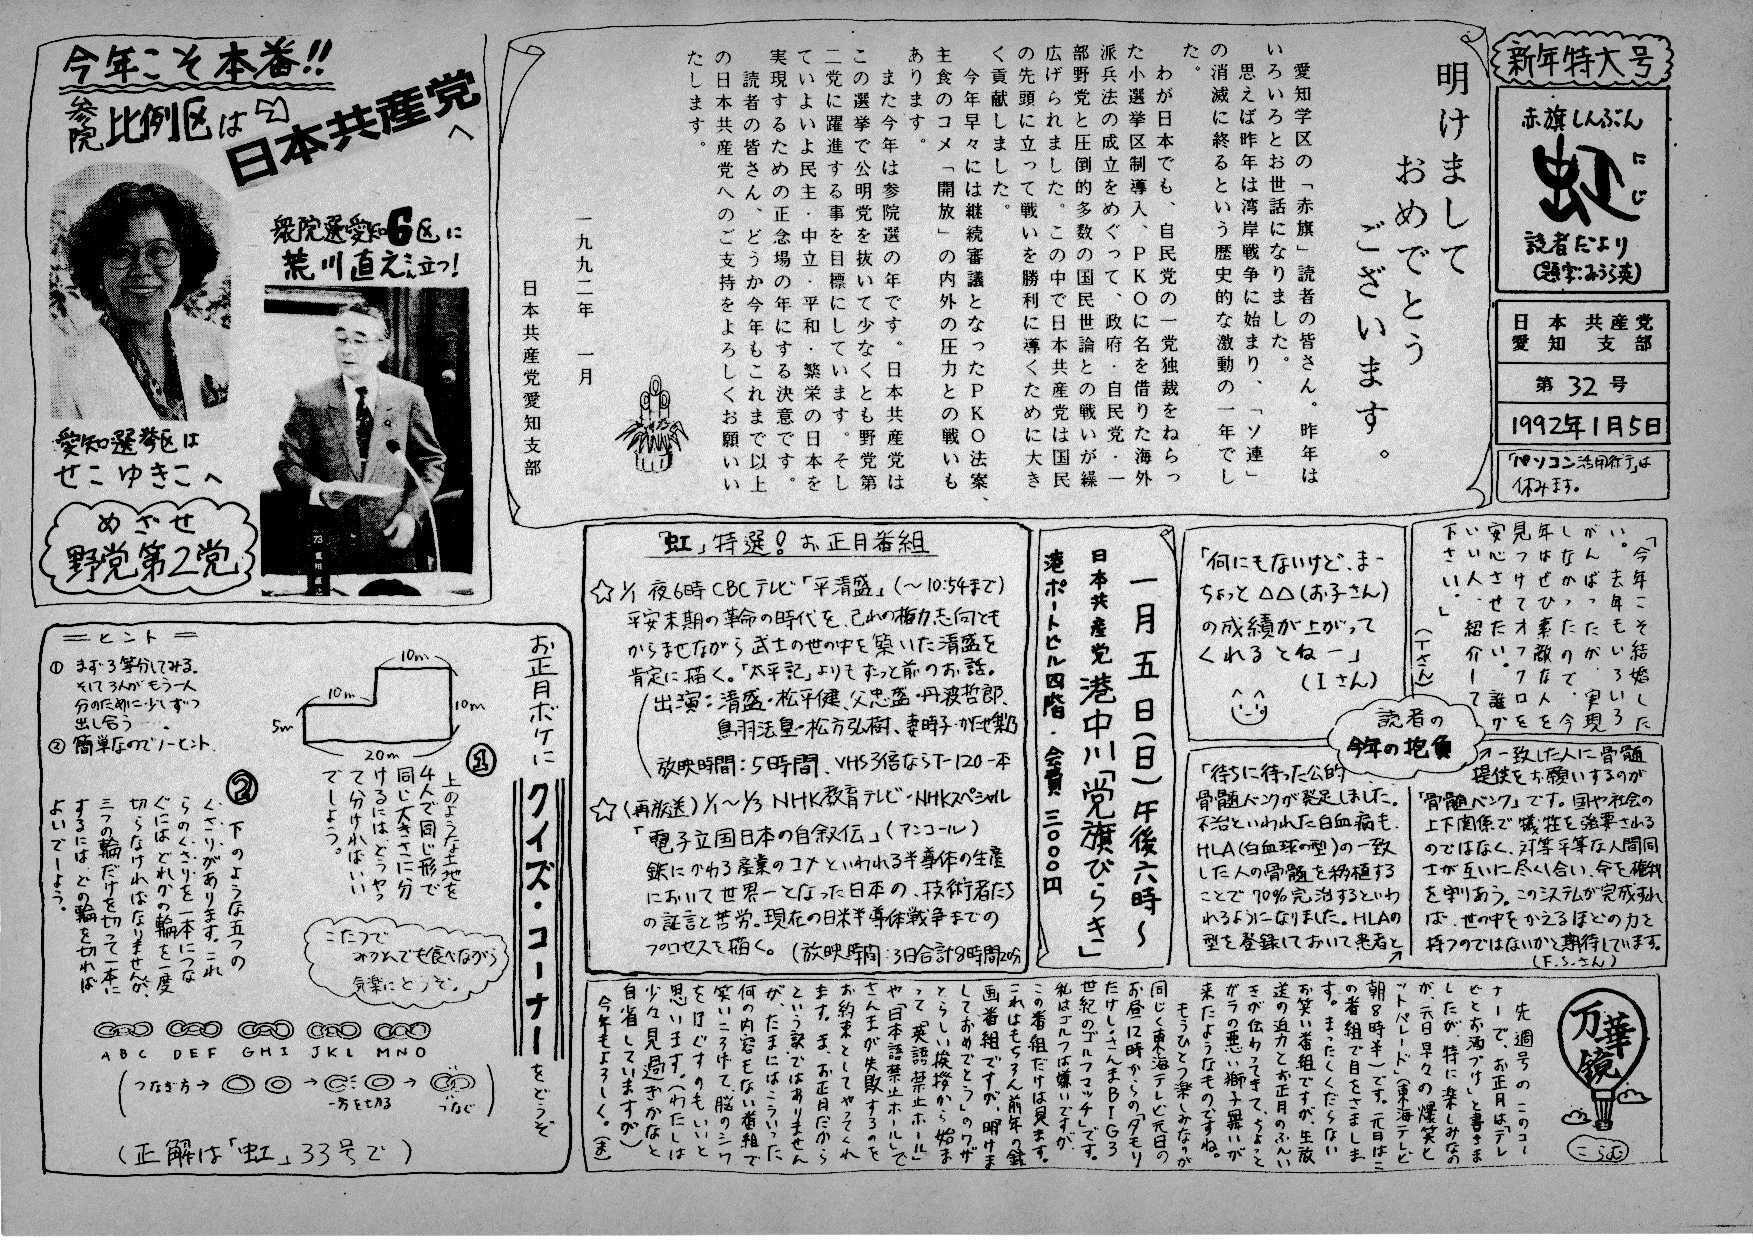 新年特大号
赤旗しんぶん
虹
にじ
読者だより
日本共産党
愛知支部
第32号
1992年1月5日
休みます。
明けまして
おめでとう
ございます。
愛知学区の「赤旗」読者の皆さん。昨年は
いろいろとお世話になりました。
思えば昨年は湾岸戦争に始まり、「ソ連」
の消滅に終るという歴史的な激動の一年でし
た。
わが日本でも、自民党の一党独裁をねらっ
た小選挙区制導入、PKOに名を借りた海外
派兵法の成立をめぐって、政府・自民党・一
部野党と圧倒的多数の国民世論との戦いが繰
広げられました。この中で日本共産党は国民
の先頭に立って戦いを勝利に導くために大き
く貢献しました。
今年早々には継続審議となったPKO法案、
主食のコメ「開放」の内外の圧力との戦いも
あります。
また今年は参院選の年です。日本共産党は
この選挙で公明党を抜いて少なくとも野党第
二党に躍進する事を目標にしています。そし
ていよいよ民主・中立・平和・繁栄の日本を
実現するための正念場の年にする決意です。
読者の皆さん、どうか今年もこれまで以上
の日本共産党へのご支持をよろしくお願いい
たします。
一九九二年 一月
日本共産党愛知支部
今年こそ本番!!
参院比例区は
日本共産党へ
衆院選愛知6区に
荒川直えさん立つ!
愛知選挙区は
せこゆきこへ
めざせ
野党第2党
「虹」特選! お正月番組
☆1/1 夜6時CBCテレビ「平清盛」(〜10:54まで)
平安末期の革命の時代を、己れの権力志向とも
からませながら武士の世の中を築いた清盛を
肯定に描く。「太平記」よりもずっと前のお話。
(出演:清盛・松平健、父忠盛・丹波哲郎、
鳥羽法皇・松方弘樹、妻時子・かたせ梨乃
放映時間:5時間、VHS3倍ならT-120一本
☆(再放送)1/1〜1/3 NHK教育テレビ・NHKスペシャル
「電子立国日本の自叙伝」(アンコール)
鉄にかわる産業のコメといわれる半導体の生産
において世界一となった日本の、技術者たち
の証言と苦労。現在の日米半導体戦争までの
プロセスを描く。(放映時間:3日合計8時間20分)
一月五日(日)午後六時〜
日本共産党港中川「党旗びらき」
港ポートビル四階・会費三〇〇〇円
読者の
今年の抱負
「今年こそ結婚した
い。去年もいろいろ
がんばったが、実現
しなかったので、今
年はぜひ素敵な人を
見つけてオフクロを
安心させたい。誰か
いい人、紹介して
下さい。」
(Tさん)
「何にもないけど、まー
ちょっと△△(お子さん)
の成績が上がって
くれるとねー」
(Iさん)
「待ちに待った公的
骨髄バンクが発足しました。
不治といわれた白血病も、
HLA(白血球の型)の一致
した人の骨髄を移植する
ことで70%完治するといわ
れるようになりました。HLAの
型を登録しておいて患者と
一致した人に骨髄
提供をお願いするのが
「骨髄バンク」です。国や社会の
上下関係で犠牲を強要される
のではなく、対等平等な人間同
士が互いに尽くし合い、命と権利
を守りあう。このシステムが完成すれ
ば、世の中をかえるほどの力と
持つのではないかと期待しています。
(F.S.さん)
万華鏡
こらむ
先週号のこのコー
ナーで、お正月は「テレ
ビとお酒づけ」と書きま
したが、特に楽しみなの
が、元日早々の「爆笑ヒ
ットパレード」(東海テレビ
朝8時半)です。元日はこ
の番組で目をさましま
す。まったくくだらない
お笑い番組ですが、生放
送の迫力とお正月のふんい
きが伝わってきて、ちょっと
ガラの悪い獅子舞いが
来たようなものですね。
もうひとつ楽しみなのが
同じく東海テレビ元日の
お昼12時からの「タモリ
たけしさんまBIG3
世紀のゴルフマッチ」です。
私はゴルフは嫌いですが、
この番組だけは見ます。
これはもちろん前年の録
画番組ですが、明けま
しておめでとう」のワザ
とらしい挨拶から始ま
って「英語禁止ホール」
や「日本語禁止ホール」で
さんまが失敗するのを
お約束としてやってくれ
ます。ま、お正月だから
という訳ではありません
が、たまにはこういった
何の内容もない番組で
笑いころげて、脳のシワ
をほぐすのもいいと
思います。(わたしは
少々見過ぎかなと
自省していますが)
今年もよろしく。
お正月ボケに
クイズ・コーナー
をどうぞ
①
上のような土地を
4人で同じ形で
同じ大きさに分
けるにはどうやっ
て分ければいい
でしょう。
10m
10m
10m
5m
20m
②
下のような五つの
くさりがあります。これ
らのくさりを一本につな
ぐにはどれかの輪を一度
切らなければなりませんが、
三つの輪だけを切って一本に
するには、どの輪を切れば
よいでしょう。
＝ヒント＝
① まず3等分してみる。
そして3人がもう一人
分のために少しずつ
出し合う…。
② 簡単なのでノーヒント。
こたつで
みかんでも食べながら
気楽にどうぞ。
A B C D E F G H I J K L M N O
(つなぎ方→
一方を切る
つなぐ)
(正解は「虹」33号で)